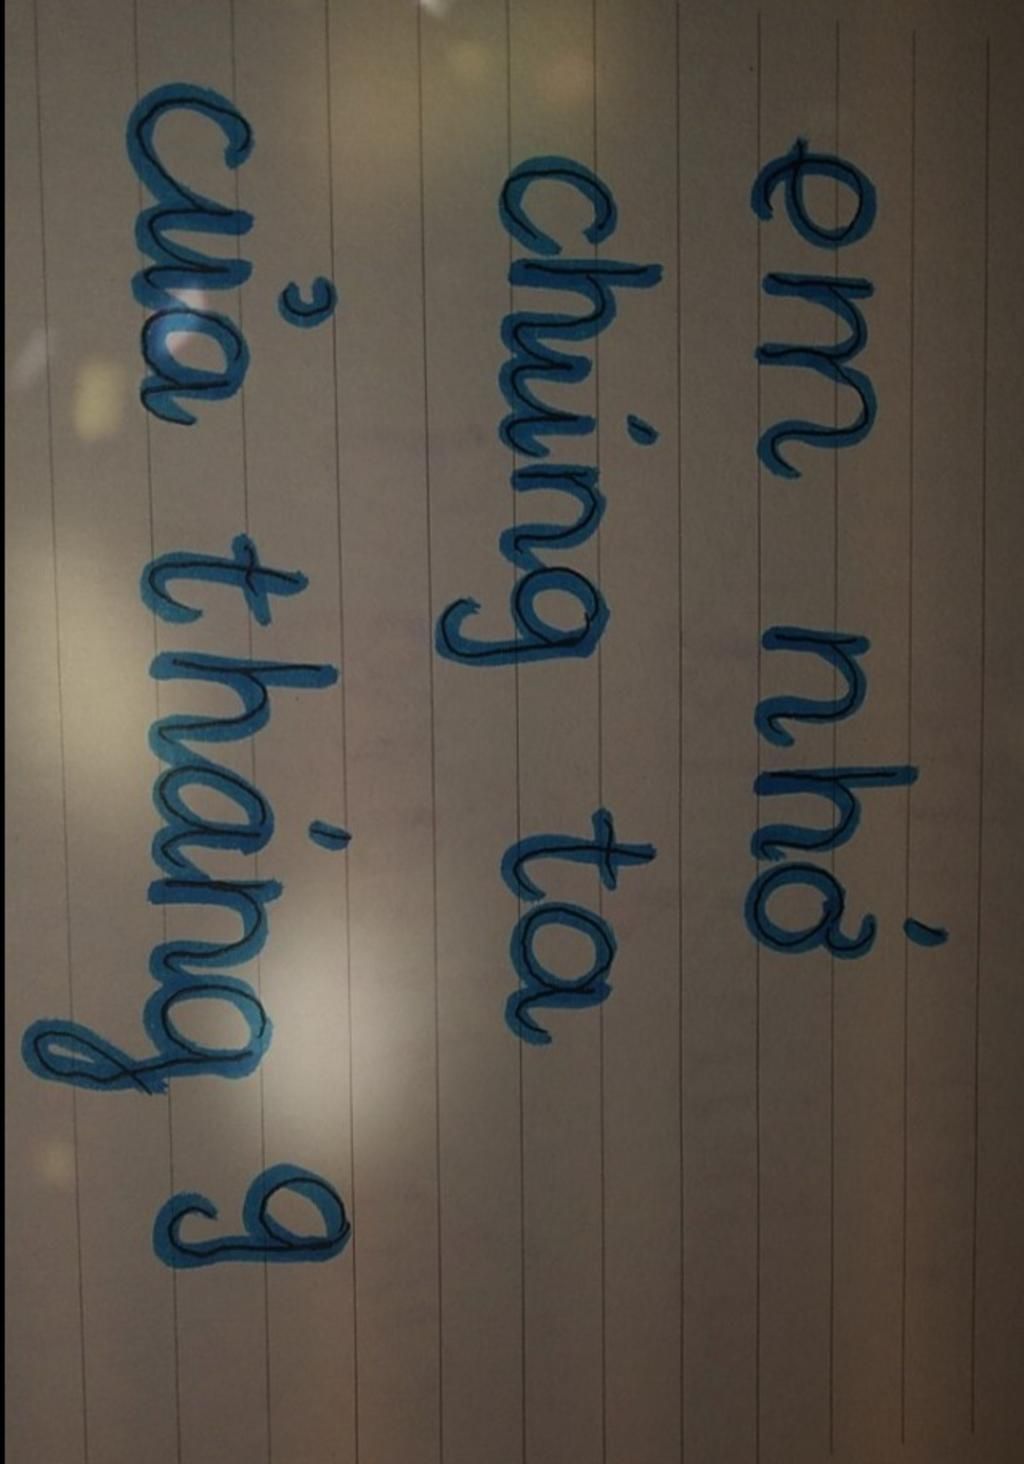 em nhớ
chúng ta
của tháng 9